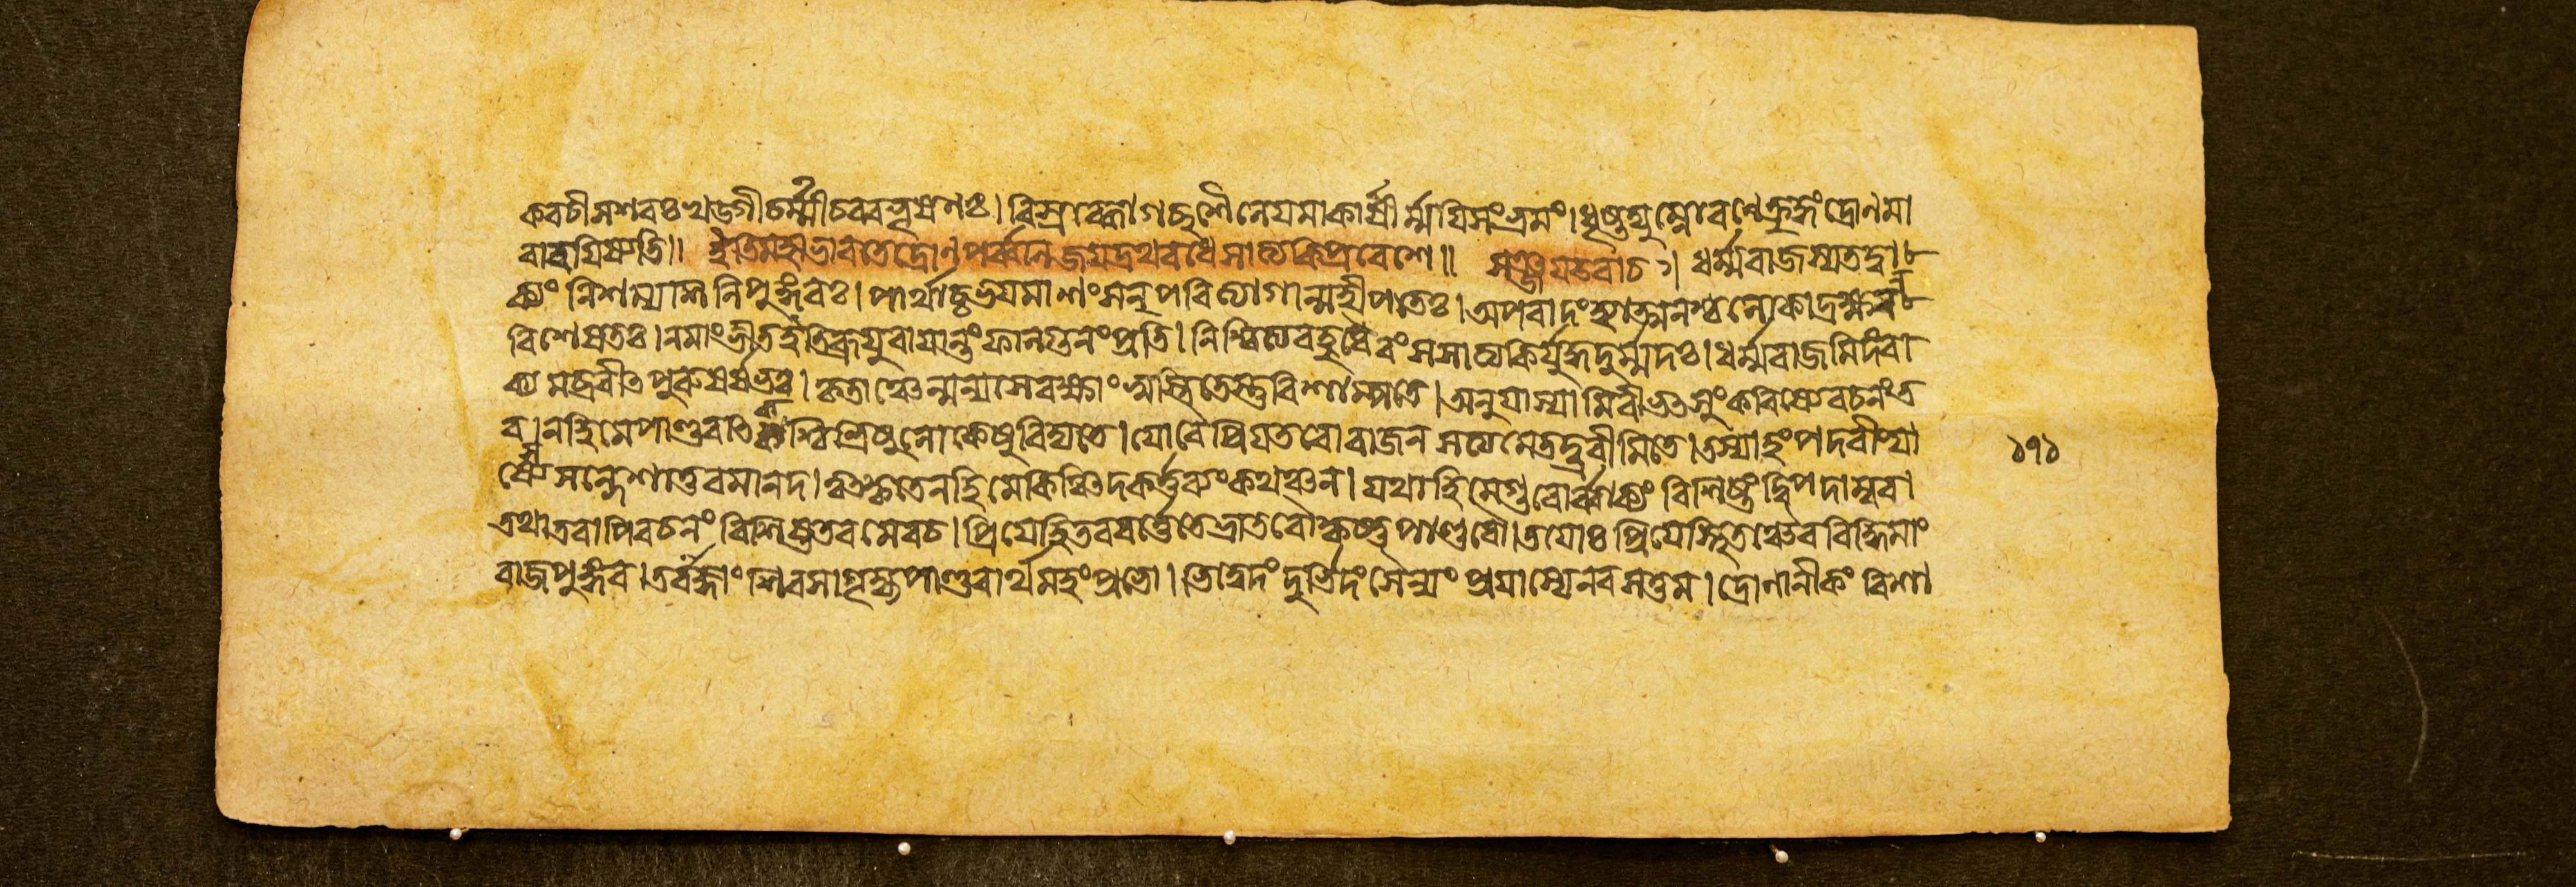 কবচী সশরঃ খড্গী চর্ম্মী চ বরভূষণঃ। বিস্রব্ধো গচ্ছ শৈনেয় মা কার্ষীর্ম্ময়ি সংভ্রমং। ধৃষ্টদ্যুম্নো রণে ক্রুদ্ধং দ্রোণমা
বারয়িষ্যতি॥ ইতি মহাভারতে দ্রোণপর্ব্বণি জয়দ্রথবধে সাত্যকিপ্রবেশে॥ সঞ্জয় উবাচ। ধর্ম্মরাজস্য তদ্বা
ক্যং নিশম্য শিনিপুঙ্গবঃ। পার্থাচ্চ ভয়মাশংসন্ পরিত্যাগান্মহীপতেঃ। অপবাদং হ্যাত্মনশ্চ লোকাদ্রক্ষন্
বিশেষতঃ। ন মাং ভীত ইতি ব্রূয়ুরায়ান্তং ফালগুনং প্রতি। নিশ্চিত্য বহুধৈবং স সাত্যকির্যুদ্ধদুর্ম্মদঃ। ধর্ম্মরাজমিদং বা
ক্যমব্রবীৎ পুরুষর্ষভঃ। কৃতাঞ্চেন্মন্যসে রক্ষাং স্বস্তি তেস্তু বিশাম্পতে। অনুয়াস্যামি বীভৎসুং করিষ্যে বচনং ত
ব। ন হি মে পাণ্ডবাৎ কশ্চিত্রিষু লোকেষু বিদ্যতে। যো বৈ প্রিয়তরো রাজন্ সত্যমেতদ্ব্রবীমি তে। তস্যাহং পদবীং যা ১৭১
স্যে সন্দেশাত্তব মানদ। ত্বৎকৃতে ন হি মে কিঞ্চিদকর্ত্তব্যং কথঞ্চন। যথা হি মে গুরোর্ব্বাক্যং বিশিষ্টং দ্বিপদাম্বর।
তথা তবাপি বচনং বিশিষ্টতরমেব চ। প্রিয়ে হি তব বর্ত্তেতে ভ্রাতরৌ কৃষ্ণপাণ্ডবৌ। তয়োঃ প্রিয়ে স্থিতঞ্চৈব বিদ্ধি মাং
রাজপুঙ্গব। তবাজ্ঞাং শিরসা গৃহ্য পাণ্ডবার্থমহং প্রভো। ভিত্বেদং দুর্ভিদং সৈন্যং প্রয়াস্যে নরসত্তম। দ্রোণানীকং বিশা